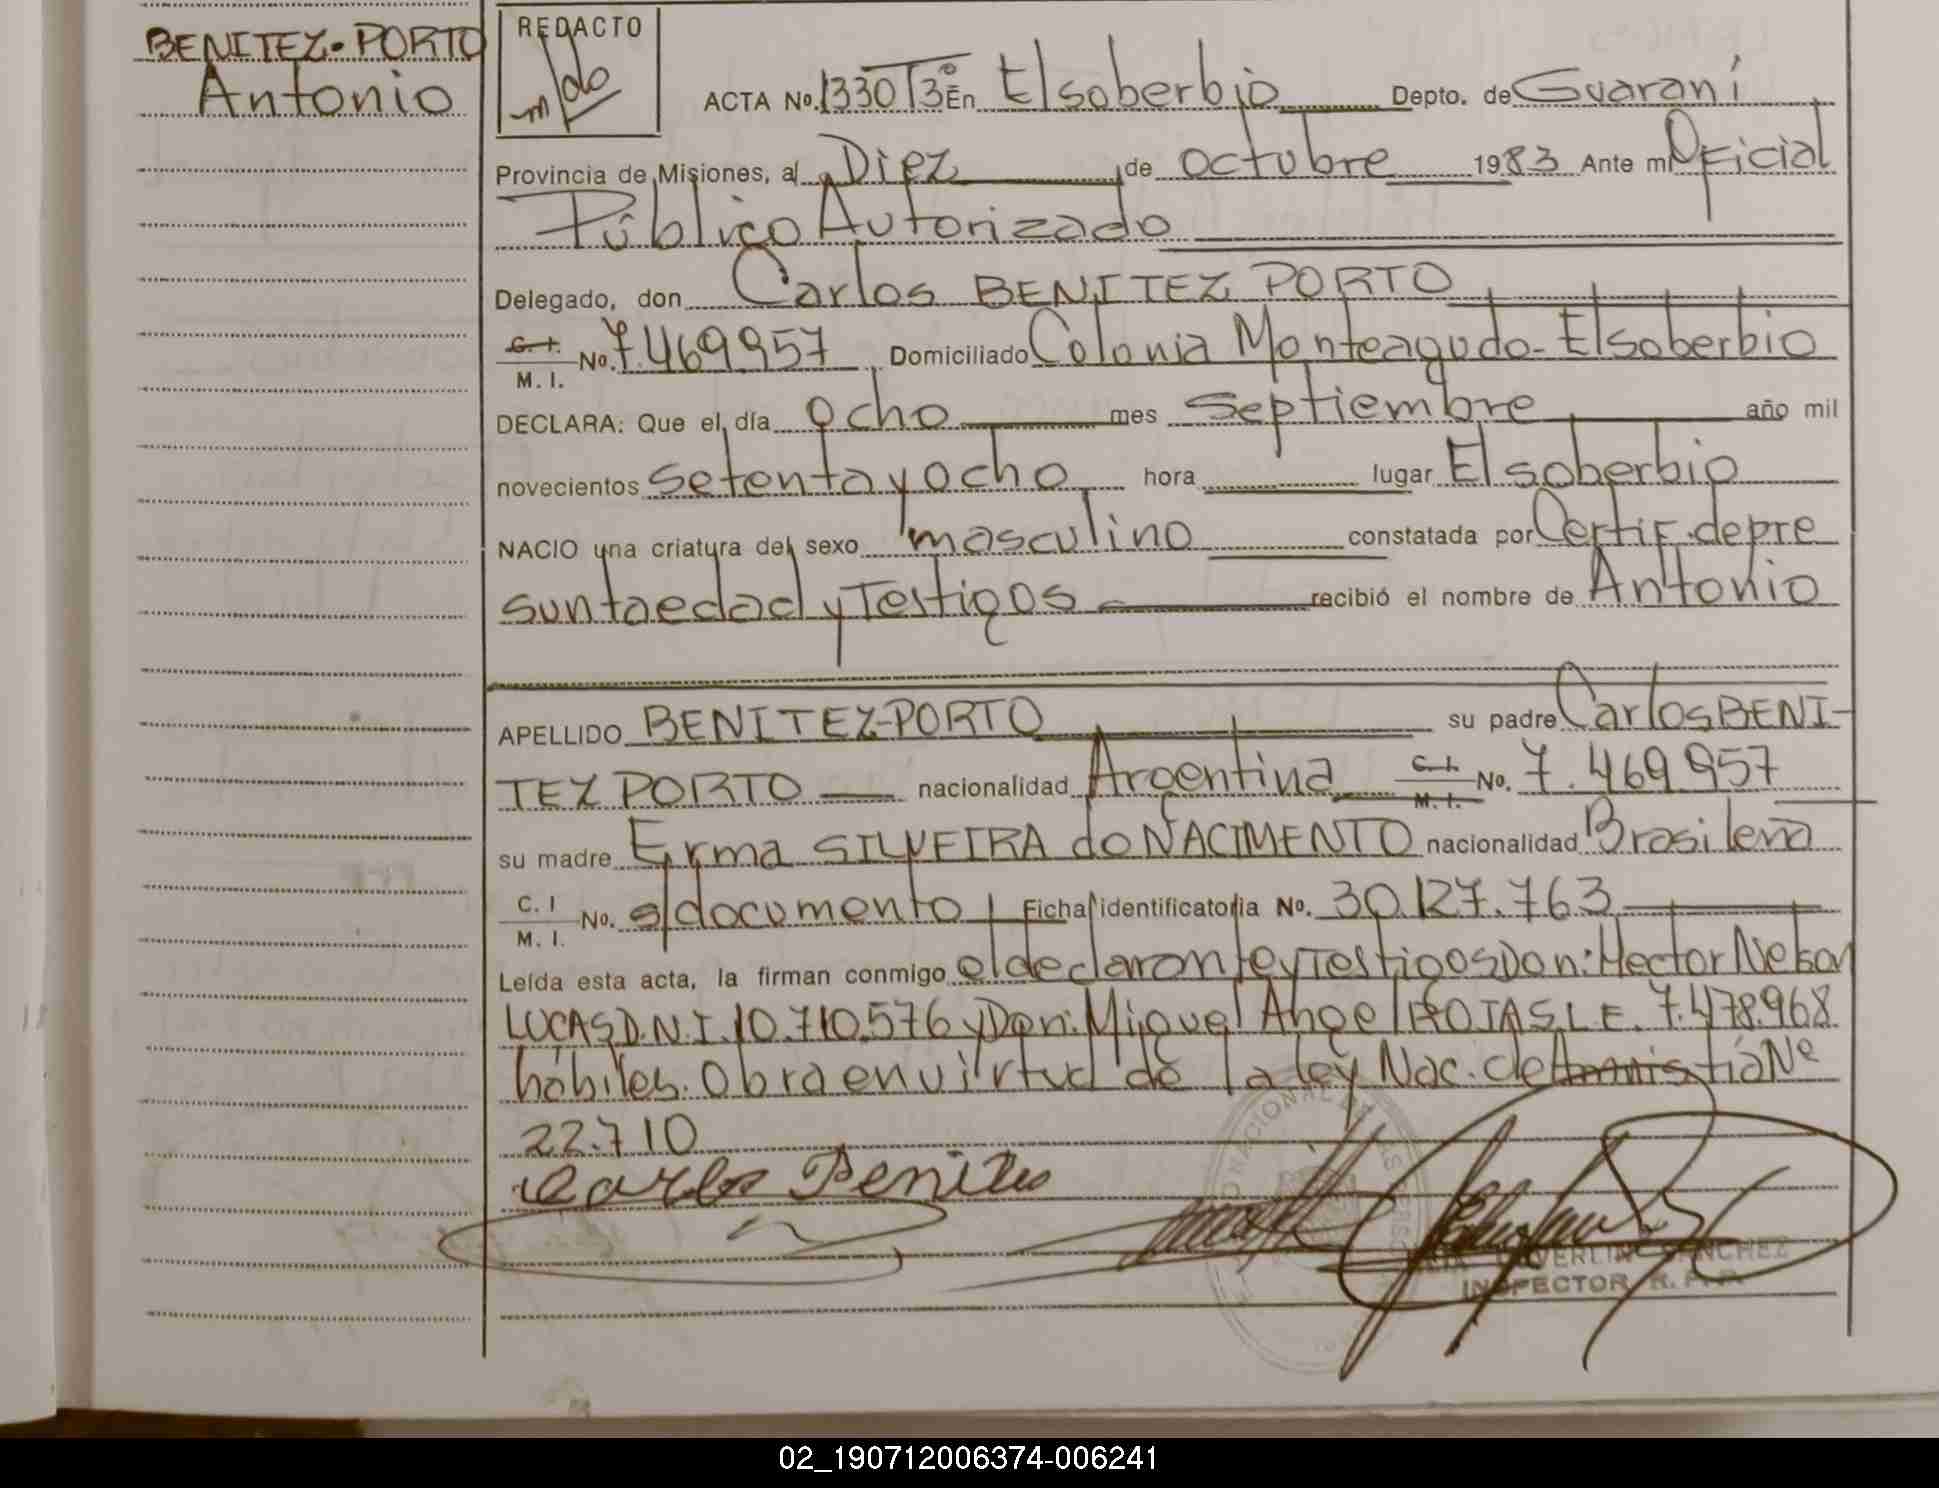 BENITEZ-PORTO
Antonio
REDACTO
ACTA No. 1330 T3º En El soberbio Depto. de Guaraní
Provincia de Misiones, al Diez de octubre 1983 Ante mi Oficial
Público Autorizado
Delegado, don Carlos BENITEZ PORTO
C. I. M. I. No. 7.469.957 Domiciliado Colonia Monteagudo-El soberbio
DECLARA: Que el día ocho mes septiembre año mil
novecientos setenta y ocho hora lugar El soberbio
NACIO una criatura del sexo masculino constatada por Certif. de pre
sunta edad y Testigos recibió el nombre de Antonio
APELLIDO BENITEZ-PORTO su padre Carlos BENI-
TEZ PORTO nacionalidad Argentina C. I. M. I. No. 7.469.957
su madre Erma SILVEIRA do NACIMENTO nacionalidad Brasilera
C. I M. I. No. s/documento Ficha identificatoria No. 30.127.763
Leída esta acta, la firman conmigo el declarante y Testigos Don: Hector Nelson
LUCAS D.N.I. 10.710.576 y Don: Miguel Angel ROJAS L.E. 7.478.968
hábiles. Obra en virtud de la ley Nac. de Amnistía Nº
22.710
Carlos Benites
SANCHEZ
INSPECTOR R. P. P.
02_190712006374-006241